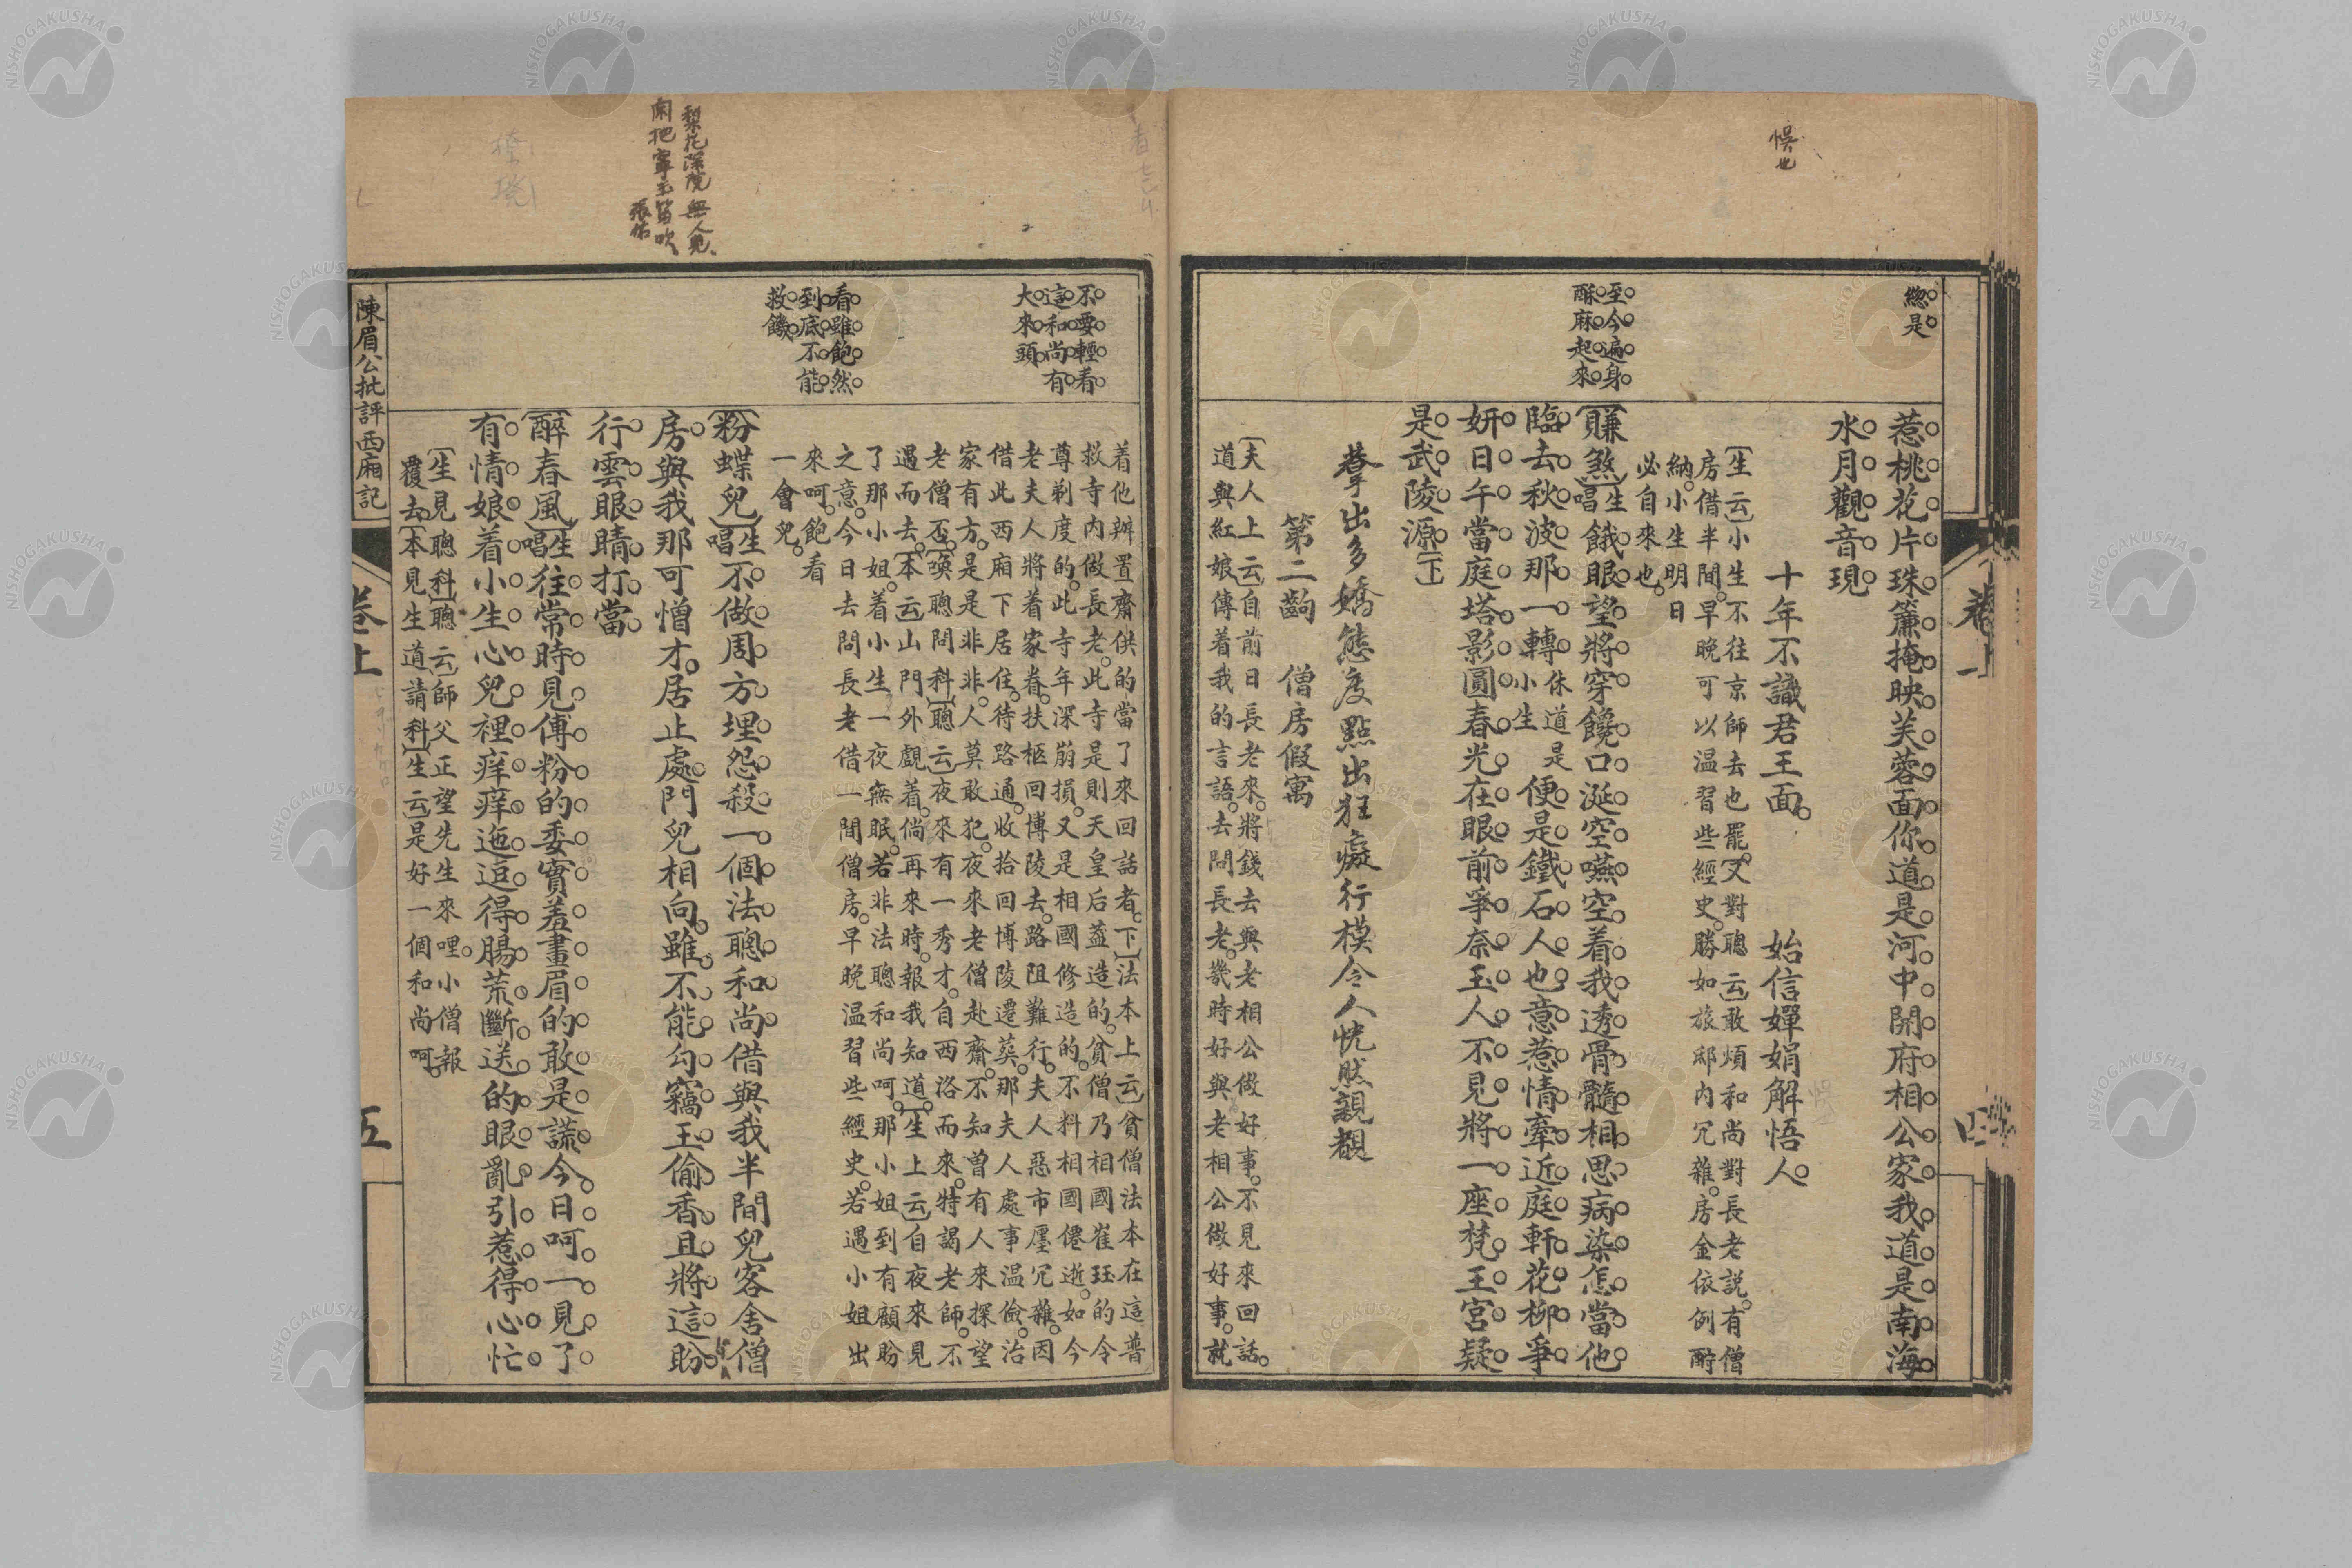 悞也
緫是
至今遍身
酥麻起來
惹桃花片珠簾掩映芙蓉面你道是河中開府相公家我道是南海
水月觀音現
十年不識君王面。始信嬋娟解悟人。
〔生云〕小生不往京師去也罷。〔又對聰云〕敢煩和尚對長老説。有僧
房借半間。早晚可以温習些經史。勝如旅邸内冗雜。房金依例酧
納。小生明日
必自來也。
〔賺煞〕〔生唱〕餓眼望將穿饞口涎空嚥空着我透骨髓相思病染怎當他
臨去秋波那一轉休道是小生便是鐵石人也意惹情牽近庭軒花柳爭
妍日午當庭塔影圓春光在眼前爭奈玉人不見將一座梵王宮疑
是武陵源〔下〕
摹出多嬌態度點出狂癡行模令人恍然親覩
第二齣 僧房假寓
〔夫人上云〕自前日長老來。將錢去與老相公做好事。不見來回話。
道與紅娘傳着我的言語。去問長老。幾時好與老相公做好事。就
卷一
四
不要輕看
這和尚有
大來頭
看雖飽然
到底不能
救饑
着他辨置齋供的當了來回話者。〔下〕〔法本上云〕貧僧法本在這普
救寺内做長老。此寺是則天皇后葢造的。貧僧乃相國崔珏的令
尊剃度的。此寺年深崩損。又是相國修造的。不料相國僊逝。如今
老夫人將着家眷。扶柩回博陵去。路阻難行。夫人惡市廛冗雜。因
借此西廂下居住。待路通。收拾回博陵遷葬。那夫人處事温儉。治
家有方。是是非非。人莫敢犯。夜來老僧赴齋。不知曾有人來探望
老僧否。〔喚聰問科〕〔聰云〕夜來有一秀才。自西洛而來。特謁老師。不
遇而去。〔本云〕山門外覷着。倘再來時。報我知道。〔生上云〕自夜來見
了那小姐。着小生一夜無眠。若非法聰和尚呵。那小姐到有顧盼
之意。今日去問長老借一間僧房。早晚温習些經史。若遇小姐出
來呵。飽看
一會兒。
〔粉蝶兒〕〔生唱〕不做周方埋怨殺一個法聰和尚借與我半間兒客舍僧
房與我那可憎才居止處門兒相向雖不能勾竊玉偷香且將這盼
行雲眼睛打當
〔醉春風〕〔生唱〕往常時見傅粉的委實羞畫眉的敢是謊今日呵一見了
有情娘着小生心兒裡痒痒迤逗得腸荒斷送的眼亂引惹得心忙
〔生見聰科〕〔聰云〕師父正望先生來哩。小僧報
覆去。〔本見生道請科〕〔生云〕是好一個和尚呵。
梨花深院無人見
閑把寧王笛吹
張佑
陳眉公批評西廂記
卷上
五